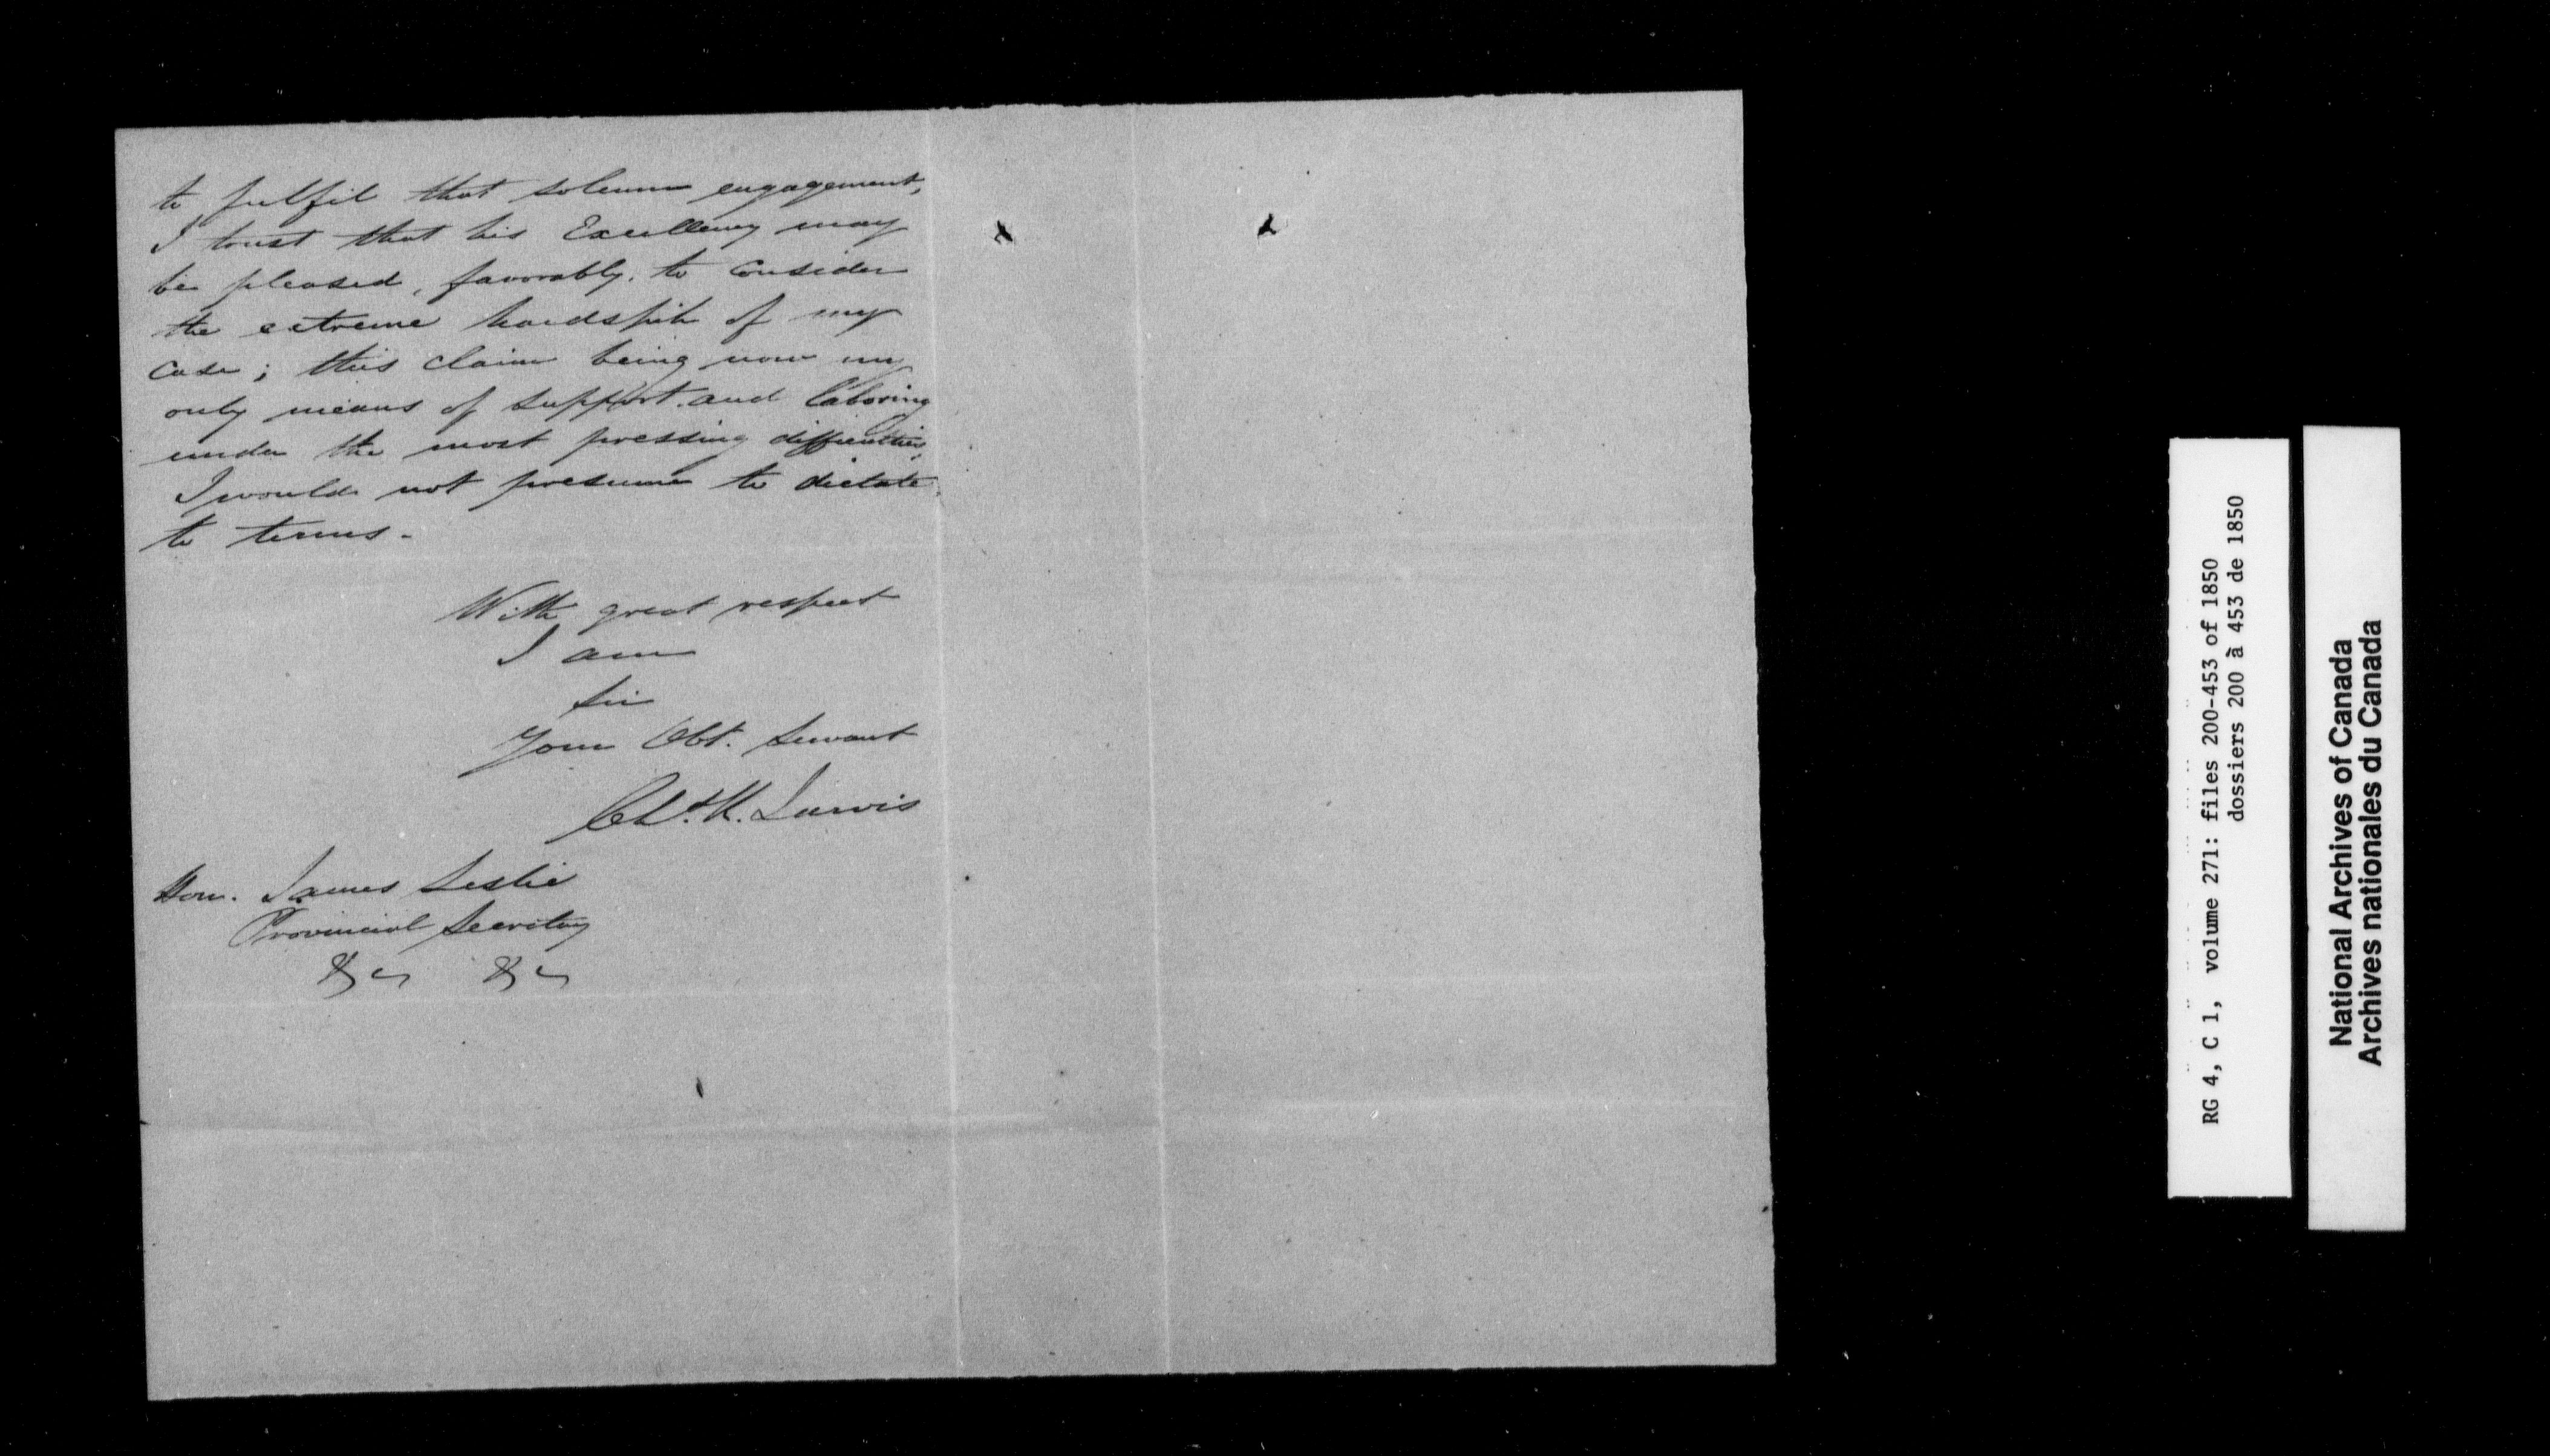 to fulfil that solemn engagement,
I trust that his Excellency may
be pleased, favorably, to consider
the extreme hardship of my
case; this claim being now my
only means of support and laboring
under the most pressing difficulties,
I would not presume to dictate
to terms.
With great respect
I am
Sir
Your Obt. Servant
Hon. James Leslie
Provincial Secretary
&c &c
RG 4, C 1, volume 271: files 200-453 of 1850
dossiers 200 à 453 de 1850
National Archives of Canada
Archives nationales du Canada